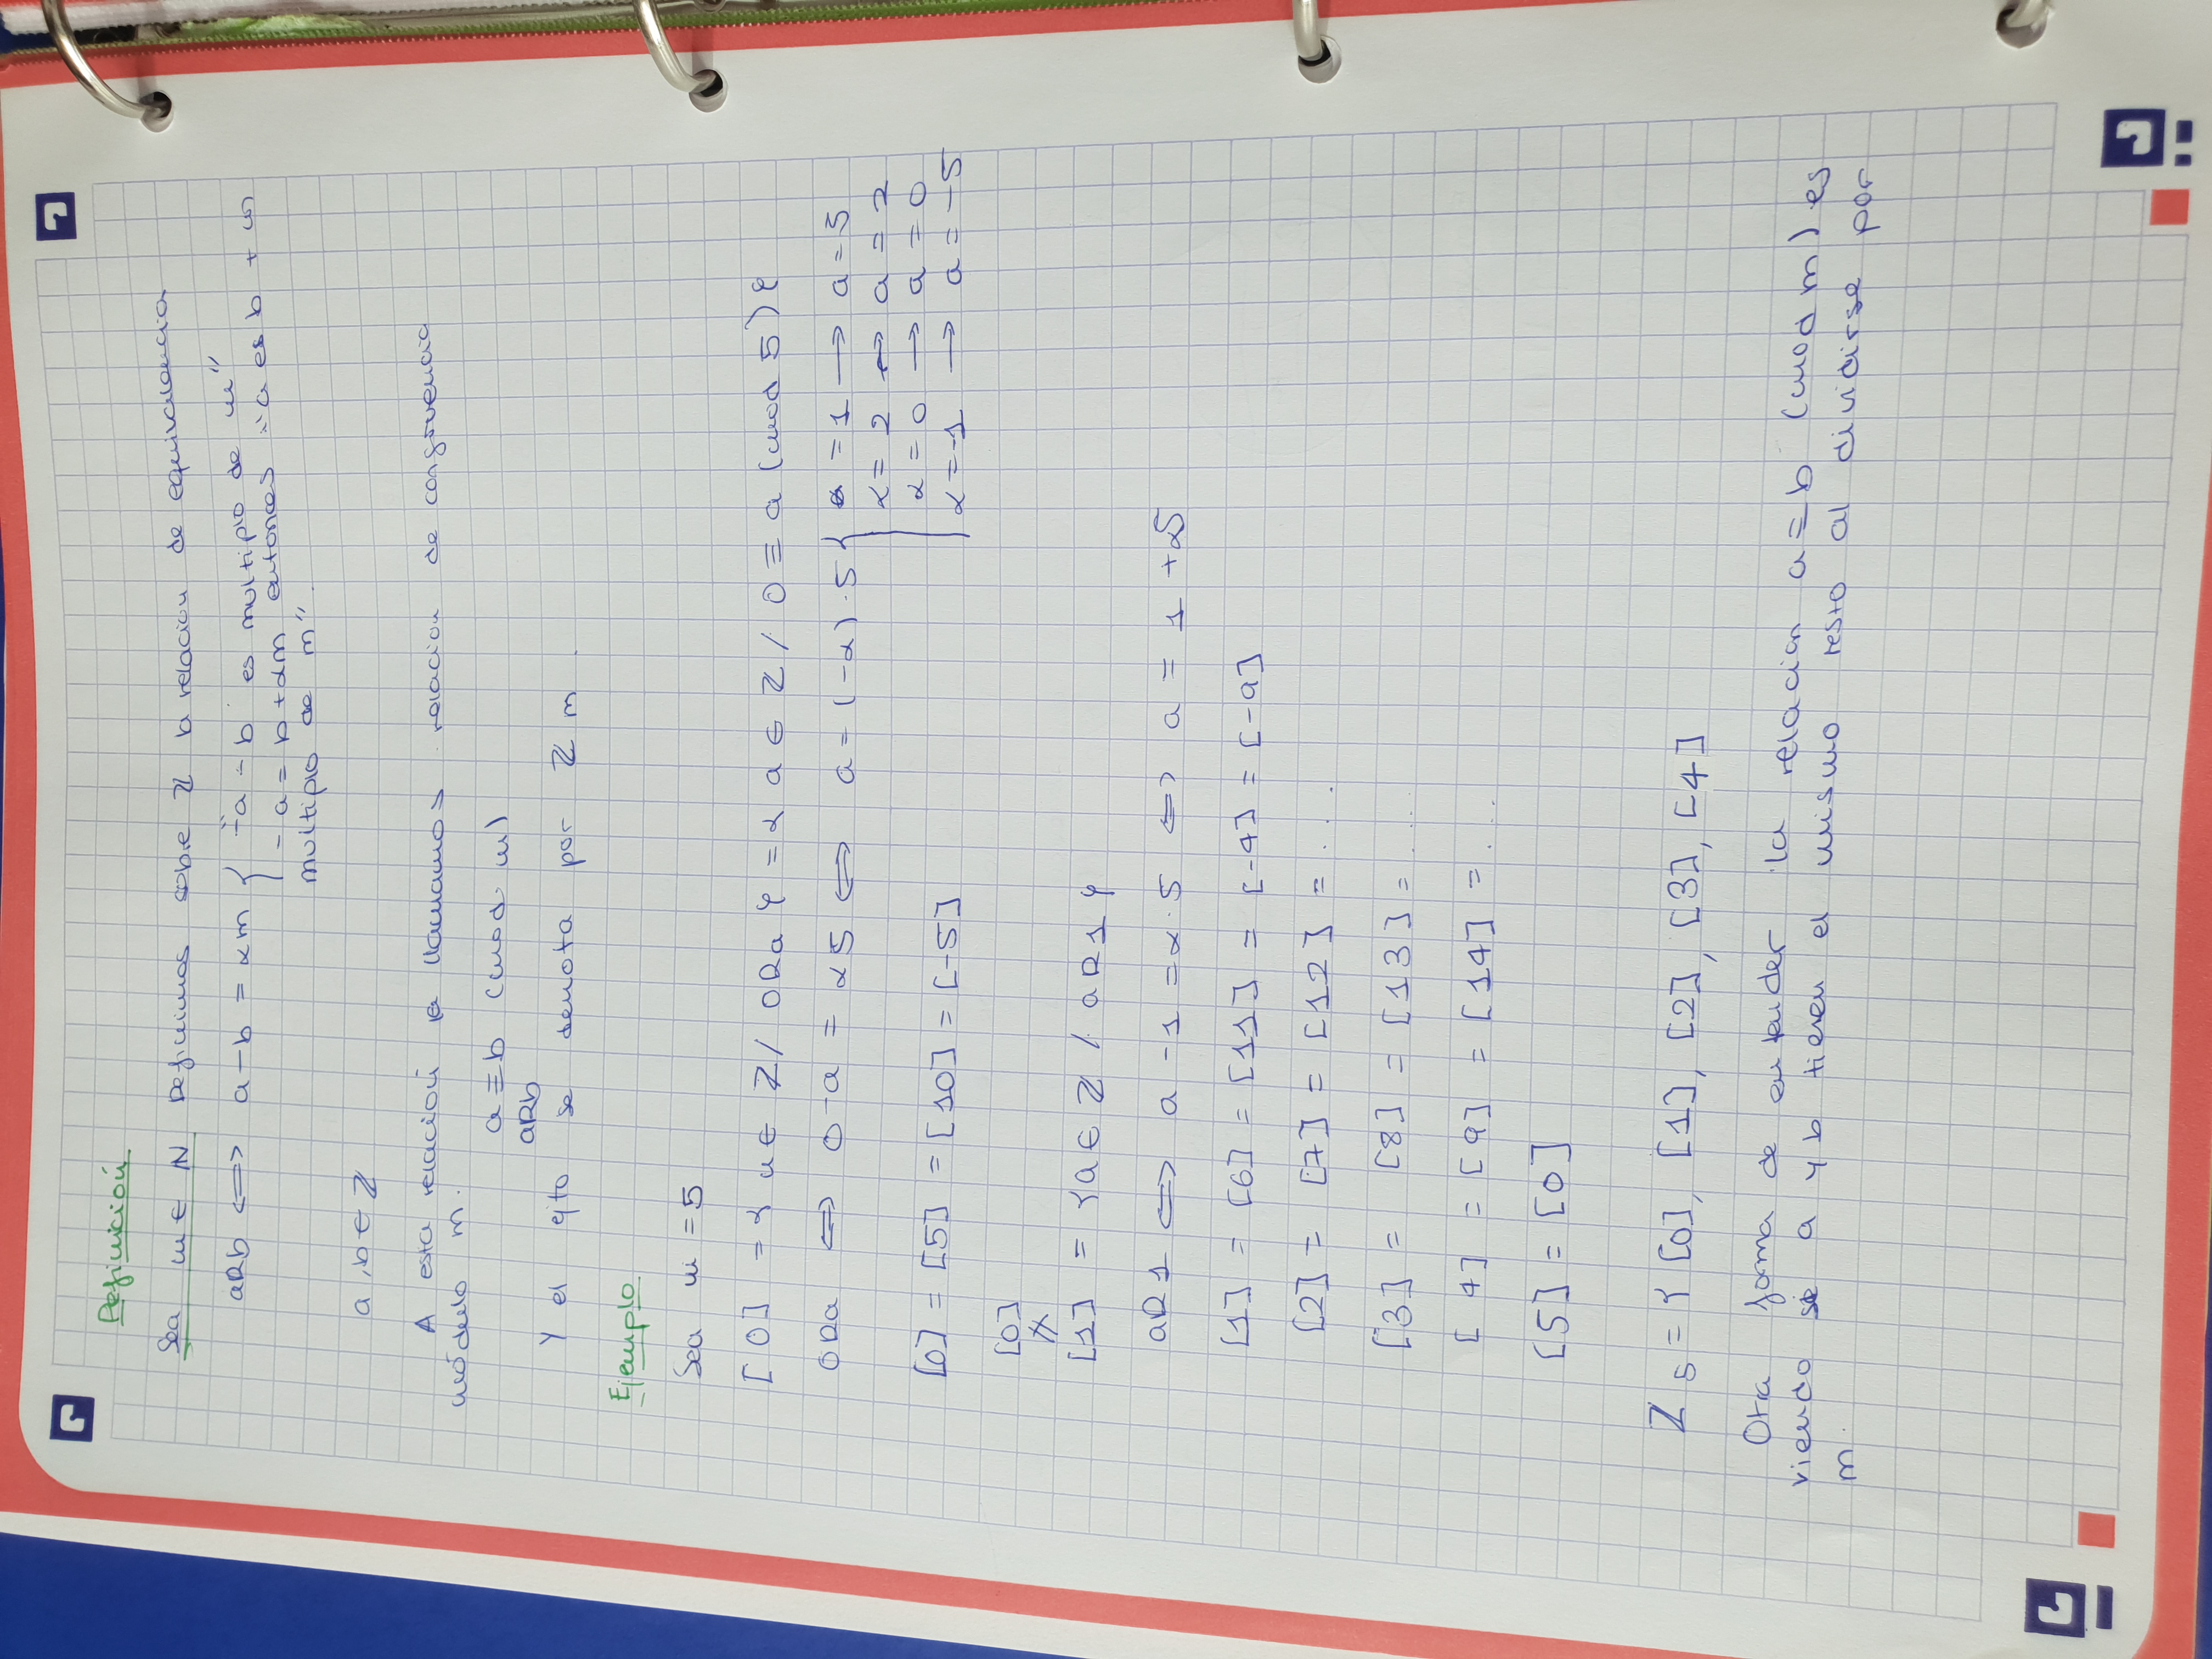 Definición
Sea m ∈ N Definimos sobre Z la relación de equivalencia
aRb ⟺ a-b = αm { - "a-b es multiplo de m"
- a = b+αm entonces "a es b + un
multiplo de m".
a, b ∈ Z
A esta relación la llamamos relación de congruencia
módulo m.
a ≡ b (mod m)
aRb
Y el cjto se denota por Z m.
Ejemplo
Sea m = 5
[0] = { n ∈ Z / 0Ra } = { a ∈ Z / 0 ≡ a (mod 5) }
0Ra ⟺ 0-a = α5 ⟺ a = (-α)·5 { α = 1 → a = 5
α = 2 ↔ a = 2
α = 0 → a = 0
α = -1 → a = -5
[0] = [5] = [10] = [-5]
[0]
∦
[1] = { a ∈ Z / aR1 }
aR1 ⟺ a-1 = α·5 ⟺ a = 1 + α5
[1] = [6] = [11] = [-4] = [-9]
[2] = [7] = [12] = . . .
[3] = [8] = [13] = . . .
[4] = [9] = [14] = . . .
[5] = [0]
Z 5 = { [0], [1], [2], [3], [4]
Otra forma de entender la relacion a ≡ b (mod m) es
viendo si a y b tienen el mismo resto al dividirse por
m.